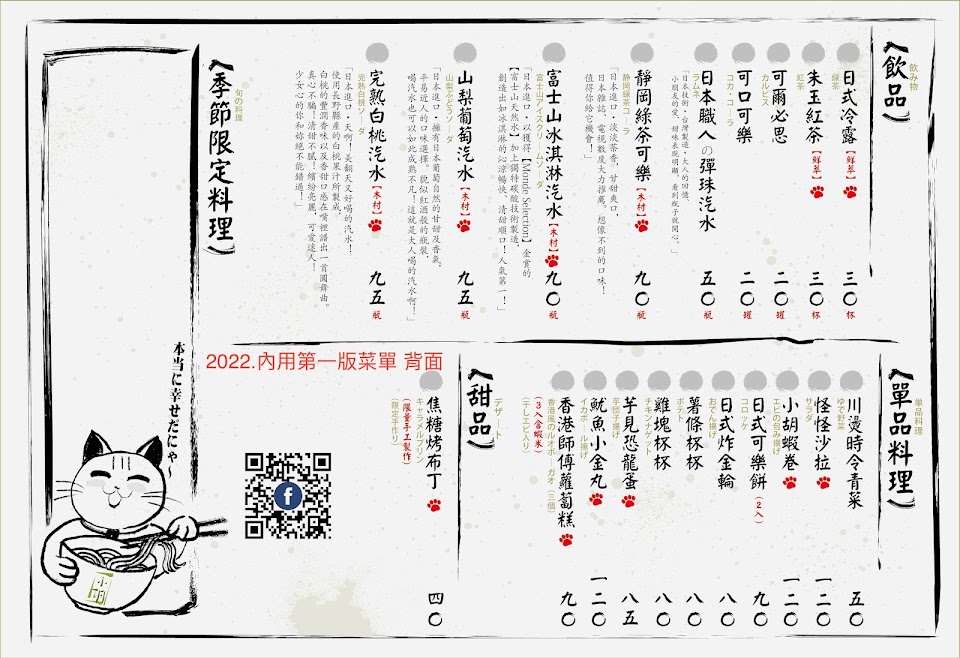 《飲品》
飲み物
日式冷露【鮮萃】
緑茶
三〇杯
朱玉紅茶【鮮萃】
紅茶
三〇杯
可爾必思
カルピス
二〇罐
可口可樂
コカ・コーラ
二〇罐
日本職人の彈珠汽水
ラムネ
五〇瓶
「日本技術，台灣製造，大人的回憶、
小朋友的愛，甜味表現明顯，看到瓶子就開心。」
靜岡綠茶可樂【木村】
静岡緑茶コーラ
九〇瓶
「日本進口，淡淡茶香，甘甜爽口，
日本雜誌、電視數度大力推薦。想像不到的口味！
值得你給它機會！」
富士山冰淇淋汽水【木村】
富士山アイスクリームソーダ
九〇瓶
「日本進口，以獲得【Monde Selection】金賞的
【富士山天然水】加上獨特碳酸技術製造，
創造出如冰淇淋的沁涼暢快、清甜順口！人氣第一！」
山梨葡萄汽水【木村】
山梨ぶどうソーダ
九五瓶
「日本進口，擁有日本葡萄自然的甘甜及香氣，
平易近人的口味選擇。貌似紅酒般的瓶裝，
喝汽水也可以如此成熟不凡！這就是大人喝的汽水啊！」
完熟白桃汽水【木村】
完熟白桃ソーダ
九五瓶
「日本進口，天啊！美翻天又好喝的汽水！
使用長野縣產的白桃果汁所製成，
白桃的豐潤香味以及香甜口感在嘴裡譜出一首圓舞曲。
真心不騙！清甜不膩！繽紛亮麗，可愛迷人！
少女心的你和妳絕不能錯過！」
《季節限定料理》
旬の料理
本当に幸せだにゃ～
小胡
2022.內用第一版菜單 背面
《單品料理》
単品料理
川燙時令青菜
ゆで野菜
五〇
怪怪沙拉
サラダ
一二〇
小胡蝦卷
エビの包み揚げ
一二〇
日式可樂餅（2入）
コロッケ
九〇
日式炸金輪
おでん揚げ
八〇
薯條杯杯
ポテト
八〇
雞塊杯杯
チキンナゲット
八〇
芋見恐龍蛋
芋団子揚げ
八五
魷魚小金丸
イカボール揚げ
一二〇
香港師傅蘿蔔糕
香港風のルオボーガオ（三個）
（3入含蝦米）
（干しエビ入り）
九〇
《甜品》
デザート
焦糖烤布丁
キャラメルプリン
（限量手工製作）
（限定手作り）
四〇